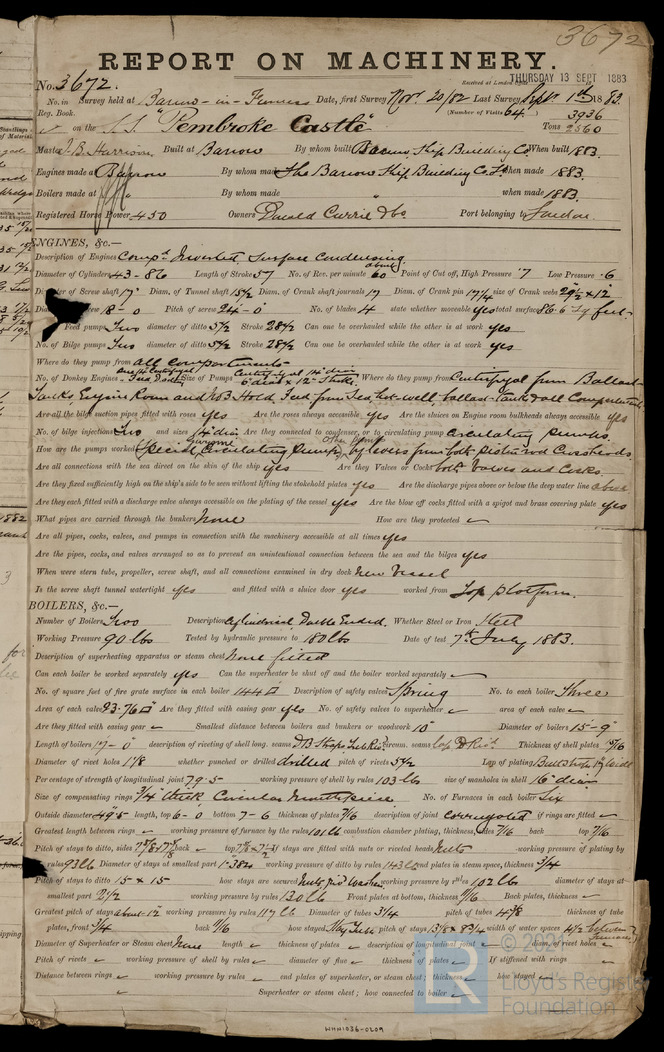 3672
REPORT ON MACHINERY.
No. 3672.
Received at London Office THURSDAY 13 SEPT 1883
No. in Survey held at Barrow-in-Furness Date, first Survey Nov. 20/82 Last Survey Sept. 1st 1883.
Reg. Book.
(Number of Visits 64.)
3936
on the S.S. "Pembroke Castle" Tons 2560
Master J. B. Harrison Built at Barrow By whom built Barrow Ship Building Co. When built 1883.
Engines made at Barrow By whom made The Barrow Ship Building Co. Ld when made 1883.
Boilers made at " By whom made when made 1883.
Registered Horse Power 450 Owners Donald Currie & Co Port belonging to London.
ENGINES, &c.—
Description of Engines Compd. Inverted Surface Condensing
Diameter of Cylinders 43-86 Length of Stroke 57 No. of Rev. per minute about 60 Point of Cut off, High Pressure .7 Low Pressure .6
Diameter of Screw shaft 17" Diam. of Tunnel shaft 15 1/2 Diam. of Crank shaft journals 17 Diam. of Crank pin 17 1/4 size of Crank webs
Diameter of screw 18-0 Pitch of screw 24-0 No. of blades 4 state whether moveable yes total surface 86.6 sq feet.
Feed pumps Two diameter of ditto 5 1/2 Stroke 28 1/2 Can one be overhauled while the other is at work yes
No. of Bilge pumps Two diameter of ditto 5 1/2 Stroke 28 1/2 Can one be overhauled while the other is at work yes
Where do they pump from all compartments
No. of Donkey Engines Size of Pumps Centrifugal 14 diam Where do they pump from Centrifugal from Ballast
Tanks Engine Room and No 3 Hold, Feed from Sea hot-well, ballast tanks & all Compartments
Are all the bilge suction pipes fitted with roses yes Are the roses always accessible yes Are the sluices on Engine room bulkheads always accessible yes
No. of bilge injections Two and sizes 14 diam Are they connected to condenser, or to circulating pump circulating pumps.
How are the pumps worked Special Circulating Pumps, Other pumps by levers from both Piston rod Crossheads
Are all connections with the sea direct on the skin of the ship yes Are they Valves or Cocks both Valves and Cocks
Are they fixed sufficiently high on the ship's side to be seen without lifting the stokehold plates yes Are the discharge pipes above or below the deep water line above
Are they each fitted with a discharge valve always accessible on the plating of the vessel yes Are the blow off cocks fitted with a spigot and brass covering plate yes
What pipes are carried through the bunkers None How are they protected
Are all pipes, cocks, valves, and pumps in connection with the machinery accessible at all times yes
Are the pipes, cocks, and valves arranged so as to prevent an unintentional connection between the sea and the bilges yes
When were stern tube, propeller, screw shaft, and all connections examined in dry dock New Vessel
Is the screw shaft tunnel watertight yes and fitted with a sluice door yes worked from Top platform.
BOILERS, &c.—
Number of Boilers Two Description Cylindrical Double Ended. Whether Steel or Iron Steel
Working Pressure 90 lbs Tested by hydraulic pressure to 180 lbs Date of test 7th July 1883.
Description of superheating apparatus or steam chest None fitted
Can each boiler be worked separately yes Can the superheater be shut off and the boiler worked separately
No. of square feet of fire grate surface in each boiler 144 □ Description of safety valves Spring No. to each boiler Three
Area of each valve 23.76 □ Are they fitted with easing gear yes No. of safety valves to superheater area of each valve
Are they fitted with easing gear Smallest distance between boilers and bunkers or woodwork 10" Diameter of boilers 15-9"
Length of boilers 17-0 description of riveting of shell long. seams circum. seams Thickness of shell plates
Diameter of rivet holes 1 1/8 whether punched or drilled drilled pitch of rivets 5 1/2 Lap of plating
Per centage of strength of longitudinal joint 79.5 working pressure of shell by rules 103 lbs size of manholes in shell 16" diam
Size of compensating rings 3/4 thick Circular Mouthpiece No. of Furnaces in each boiler Six
Outside diameter 49.5 length, top 6-0 bottom 7-6 thickness of plates 7/16 description of joint corrugated if rings are fitted
Greatest length between rings working pressure of furnace by the rules 101 lb combustion chamber plating, thickness, sides 7/16 back top 7/16
Pitch of stays to ditto, sides back top If stays are fitted with nuts or riveted heads Nuts working pressure of plating by
rules 93 lb Diameter of stays at smallest part 1.382 working pressure of ditto by rules 143 lb end plates in steam space, thickness 3/4
Pitch of stays to ditto 15 x 15 how stays are secured Nuts, rivd Washers working pressure by rules 102 lb diameter of stays at
smallest part 2 1/2 working pressure by rules 130 lb Front plates at bottom, thickness Back plates, thickness
Greatest pitch of stays about 12 working pressure by rules 117 lb Diameter of tubes 3 1/4 pitch of tubes 4 3/8 thickness of tube
plates, front 3/4 back 11/16 how stayed Stay Tubes pitch of stays width of water spaces 4 1/2 between furnaces
Diameter of Superheater or Steam chest None length thickness of plates description of longitudinal joint diam. of rivet holes
Pitch of rivets working pressure of shell by rules diameter of flue thickness of plates If stiffened with rings
Distance between rings working pressure by rules end plates of superheater, or steam chest; thickness how stayed
Superheater or steam chest; how connected to boiler
WHN1036-0209
LR
© 2021
Lloyd's Register
Foundation